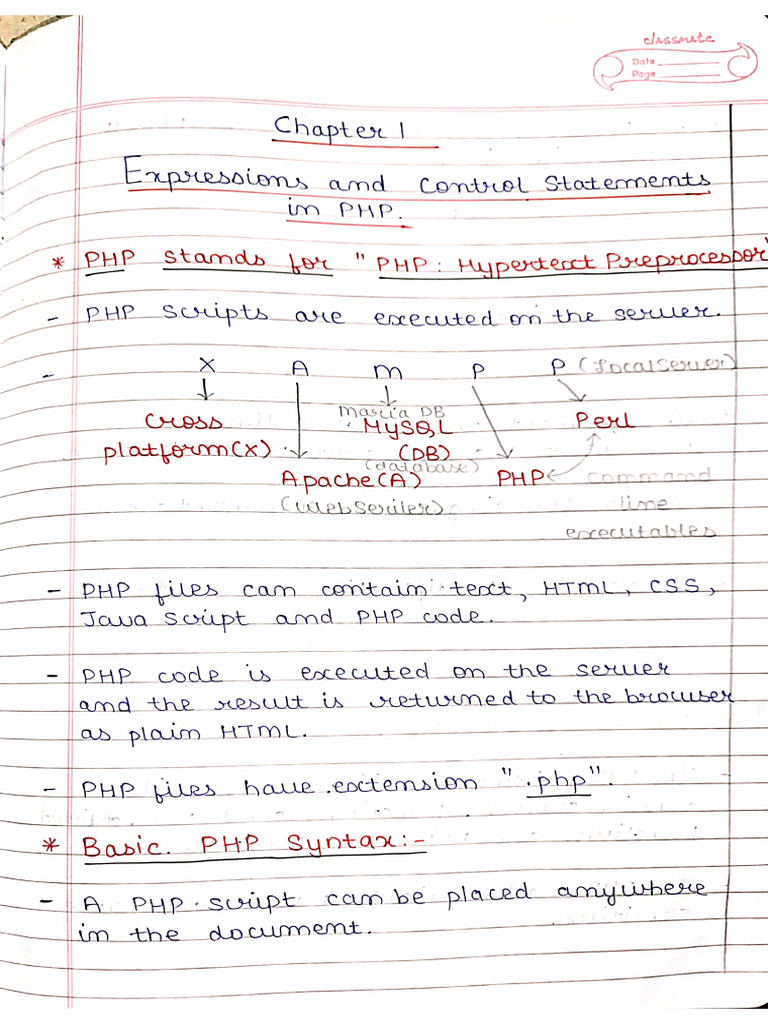 classmate
Date
Page
Chapter 1
Expressions and Control Statements
in PHP.
* PHP stands for "PHP: Hypertext Preprocessor"
- PHP scripts are executed on the server.
- X A M P P (localserver)
Cross platform(X)
Apache(A)
(Webserver)
maria DB
MySQL
(DB)
(database)
PHP
Perl
command
line
executables
- PHP files can contain text, HTML, CSS,
Java Script and PHP code.
- PHP code is executed on the server
and the result is returned to the browser
as plain HTML.
- PHP files have extension ".php".
* Basic PHP Syntax:-
- A PHP script can be placed anywhere
in the document.